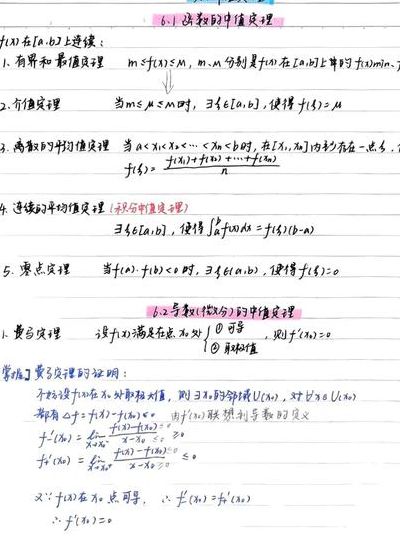 6.1 函数的中值定理
f(x)在[a,b]上连续：
1. 有界和最值定理 m≤f(x)≤M, m、M分别是f(x)在[a,b]上的f(x)min、
2. 介值定理 当m≤μ≤M时, ∃ξ∈[a,b], 使得f(ξ)=μ
3. 离散的平均值定理 当a<x₁<x₂<…<xₙ<b时, 在[x₁,xₙ]内 存在一点ξ,
f(ξ)= (f(x₁)+f(x₂)+…+f(xₙ))/n
4. 连续的平均值定理 (积分中值定理)
∃ξ∈[a,b], 使得∫ₐᵇf(x)dx=f(ξ)(b-a)
5. 零点定理 当f(a)·f(b)<0时, ∃ξ∈(a,b), 使得f(ξ)=0
6.2 导数(微分)的中值定理
1. 费马定理 设f(x)满足在点x₀处{①可导 ②取极值, 则f'(x₀)=0
掌握】费马定理的证明：
不妨设f(x)在x₀处取极大值, 则∃x₀的邻域U(x₀), 对∀x∈U(x₀)
都有△f=f(x)-f(x₀)≤0 由f'(x₀)联想到导数的定义
f₋'(x₀)= lim x→x₀⁻ (f(x)-f(x₀) ≤0)/(x-x₀ ≤0) ≥0
f₊'(x₀)= lim x→x₀⁺ (f(x)-f(x₀) ≤0)/(x-x₀ ≥0) ≤0
又∵f(x)在x₀点可导, ∴f₋'(x₀)=f₊'(x₀)
∴f'(x₀)=0